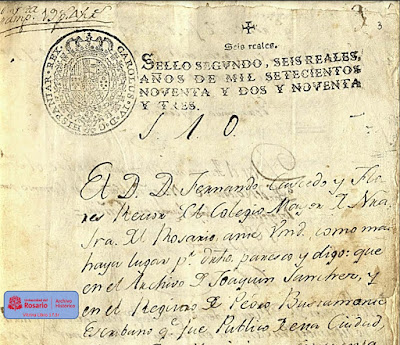 3
Seis reales.
SELLO SEGVNDO, SEIS REALES,
AÑOS DE MIL SETECIENTOS
NOVENTA Y DOS Y NOVENTA
Y TRES.
CAROLUS
HISPANIAR. REX
S. 1 0.
El D. D. Fernando Caicedo y Flo
res Rector del Colegio May. en
Sra. del Rosario, ante Vmd. como mas
haya lugar pr. dro. paresco y digo: que
en el Archivo D. Joaquin Sanchez, y
en el Registro de Pedro Bustamante
Escribano q.e fue Publico Ciudad,
Universidad del
Rosario
Archivo
Histórico